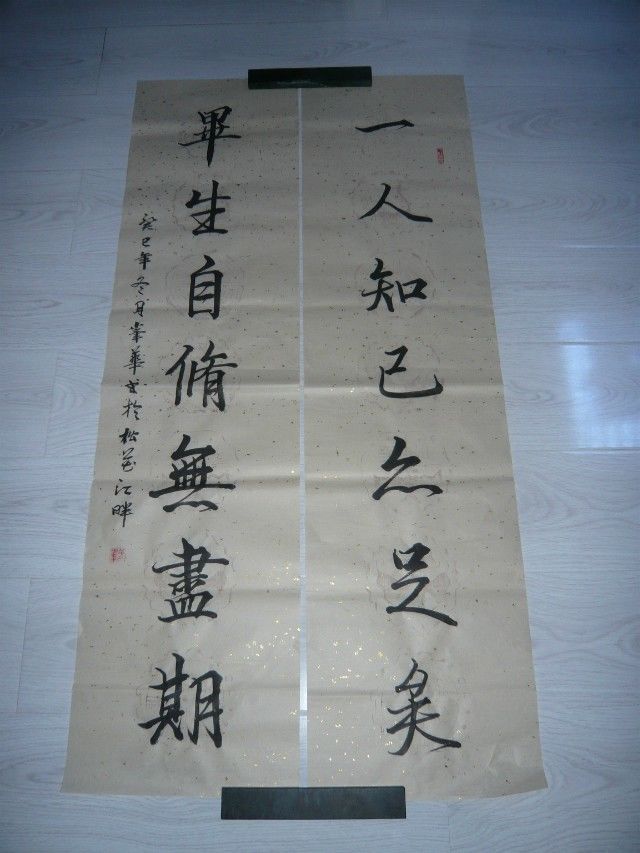 一人知己亦足矣
畢生自脩無盡期
癸巳年冬月峯華書於松花江畔